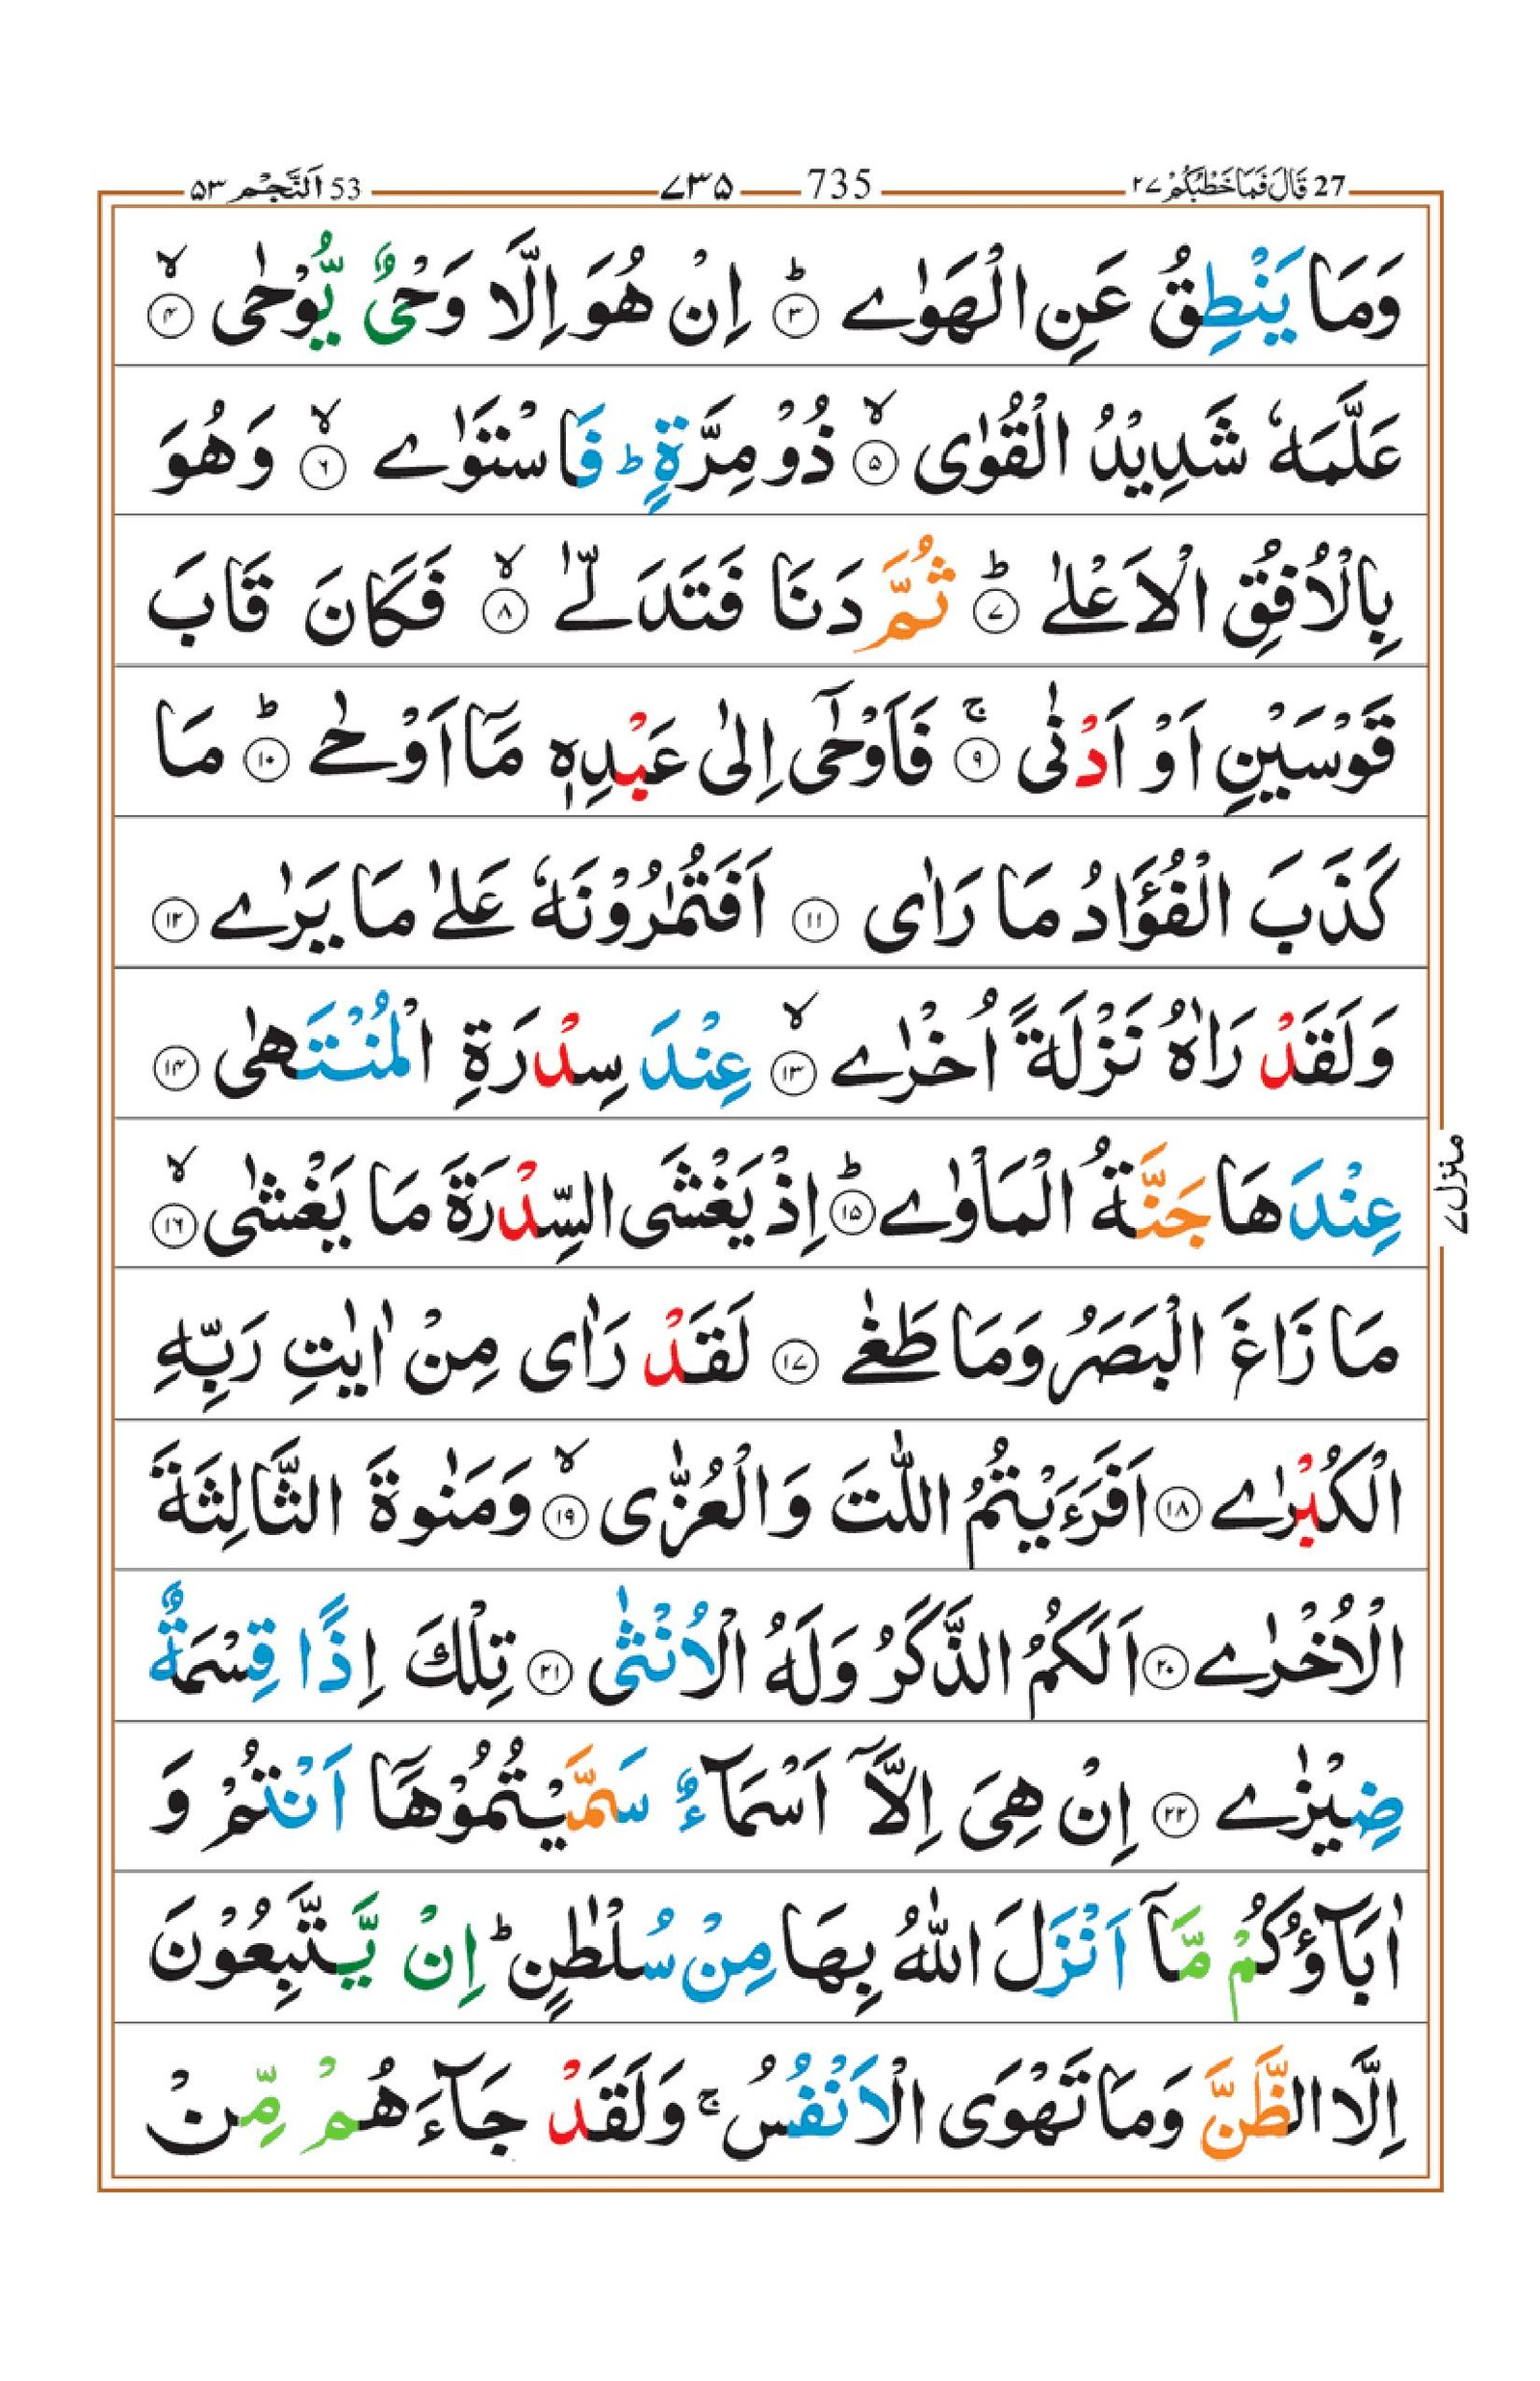 27 قَالَ فَمَا خَطْبُكُمْ ۲۷
735 ۷۳۵
53 اَلنَّجْم ۵۳
وَمَا يَنْطِقُ عَنِ الْهَوٰے ؕ﴿۳﴾ اِنْ هُوَ اِلَّا وَحْىٌ يُّوْحٰى ۙ﴿۴﴾
عَلَّمَهٗ شَدِيْدُ الْقُوٰى ۙ﴿۵﴾ ذُوْ مِرَّةٍ ؕ فَاسْتَوٰے ۙ﴿۶﴾ وَهُوَ
بِالْاُفُقِ الْاَعْلٰے ؕ﴿۷﴾ ثُمَّ دَنَا فَتَدَلّٰے ۙ﴿۸﴾ فَكَانَ قَابَ
قَوْسَيْنِ اَوْ اَدْنٰى ۚ﴿۹﴾ فَاَوْحٰٓى اِلٰى عَبْدِهٖ مَآ اَوْحٰے ؕ﴿۱۰﴾ مَا
كَذَبَ الْفُؤَادُ مَا رَاٰى ﴿۱۱﴾ اَفَتُمٰرُوْنَهٗ عَلٰے مَا يَرٰے ﴿۱۲﴾
وَلَقَدْ رَاٰهُ نَزْلَةً اُخْرٰے ۙ﴿۱۳﴾ عِنْدَ سِدْرَةِ الْمُنْتَهٰى ﴿۱۴﴾
عِنْدَهَا جَنَّةُ الْمَاْوٰے ؕ﴿۱۵﴾ اِذْ يَغْشَى السِّدْرَةَ مَا يَغْشٰى ۙ﴿۱۶﴾
مَا زَاغَ الْبَصَرُ وَمَا طَغٰے ﴿۱۷﴾ لَقَدْ رَاٰى مِنْ اٰيٰتِ رَبِّهِ
الْكُبْرٰے ﴿۱۸﴾ اَفَرَءَيْتُمُ اللّٰتَ وَالْعُزّٰى ۙ﴿۱۹﴾ وَمَنٰوةَ الثَّالِثَةَ
الْاُخْرٰے ﴿۲۰﴾ اَلَكُمُ الذَّكَرُ وَلَهُ الْاُنْثٰى ﴿۲۱﴾ تِلْكَ اِذًا قِسْمَةٌ
ضِيْزٰے ﴿۲۲﴾ اِنْ هِىَ اِلَّآ اَسْمَآءٌ سَمَّيْتُمُوْهَآ اَنْتُمْ وَ
اٰبَآؤُكُمْ مَّآ اَنْزَلَ اللّٰهُ بِهَا مِنْ سُلْطٰنٍ ؕ اِنْ يَّتَّبِعُوْنَ
اِلَّا الظَّنَّ وَمَا تَهْوَى الْاَنْفُسُ ۚ وَلَقَدْ جَآءَهُمْ مِّنْ
منزل ۷